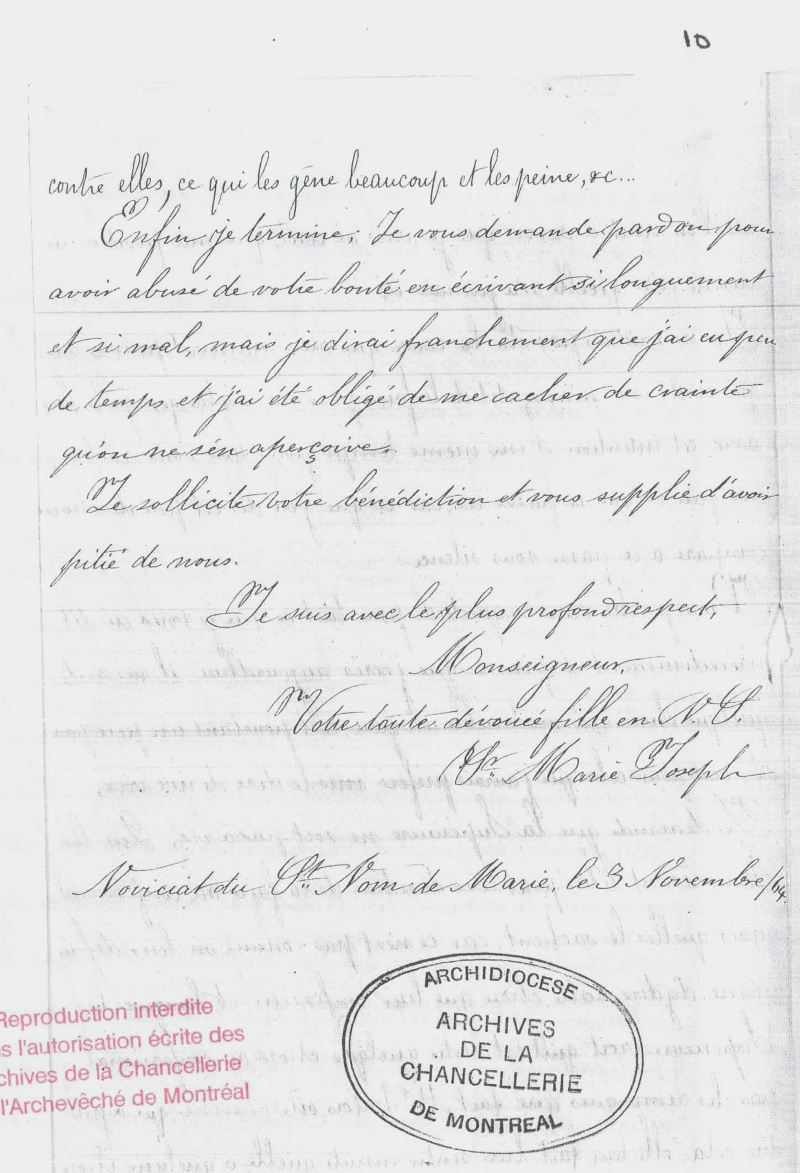 10
contre elles, ce qui les gêne beaucoup et les peine, &c...
Enfin je termine; Je vous demande pardon pour
avoir abusé de votre bonté en écrivant si longuement
et si mal, mais je dirai franchement que j'ai eu peu
de temps et j'ai été obligé de me cacher de crainte
qu'on ne s'en aperçoive.
Je sollicite votre bénédiction et vous supplie d'avoir
pitié de nous.
Je suis avec le plus profond respect,
Monseigneur,
Votre toute dévouée fille en N. S.
Sr. Marie Joseph
Noviciat du St. Nom de Marie, le 3 Novembre/64.
Reproduction interdite
s l'autorisation écrite des
chives de la Chancellerie
l'Archevêché de Montréal
ARCHIDIOCESE
ARCHIVES
DE LA
CHANCELLERIE
DE MONTREAL